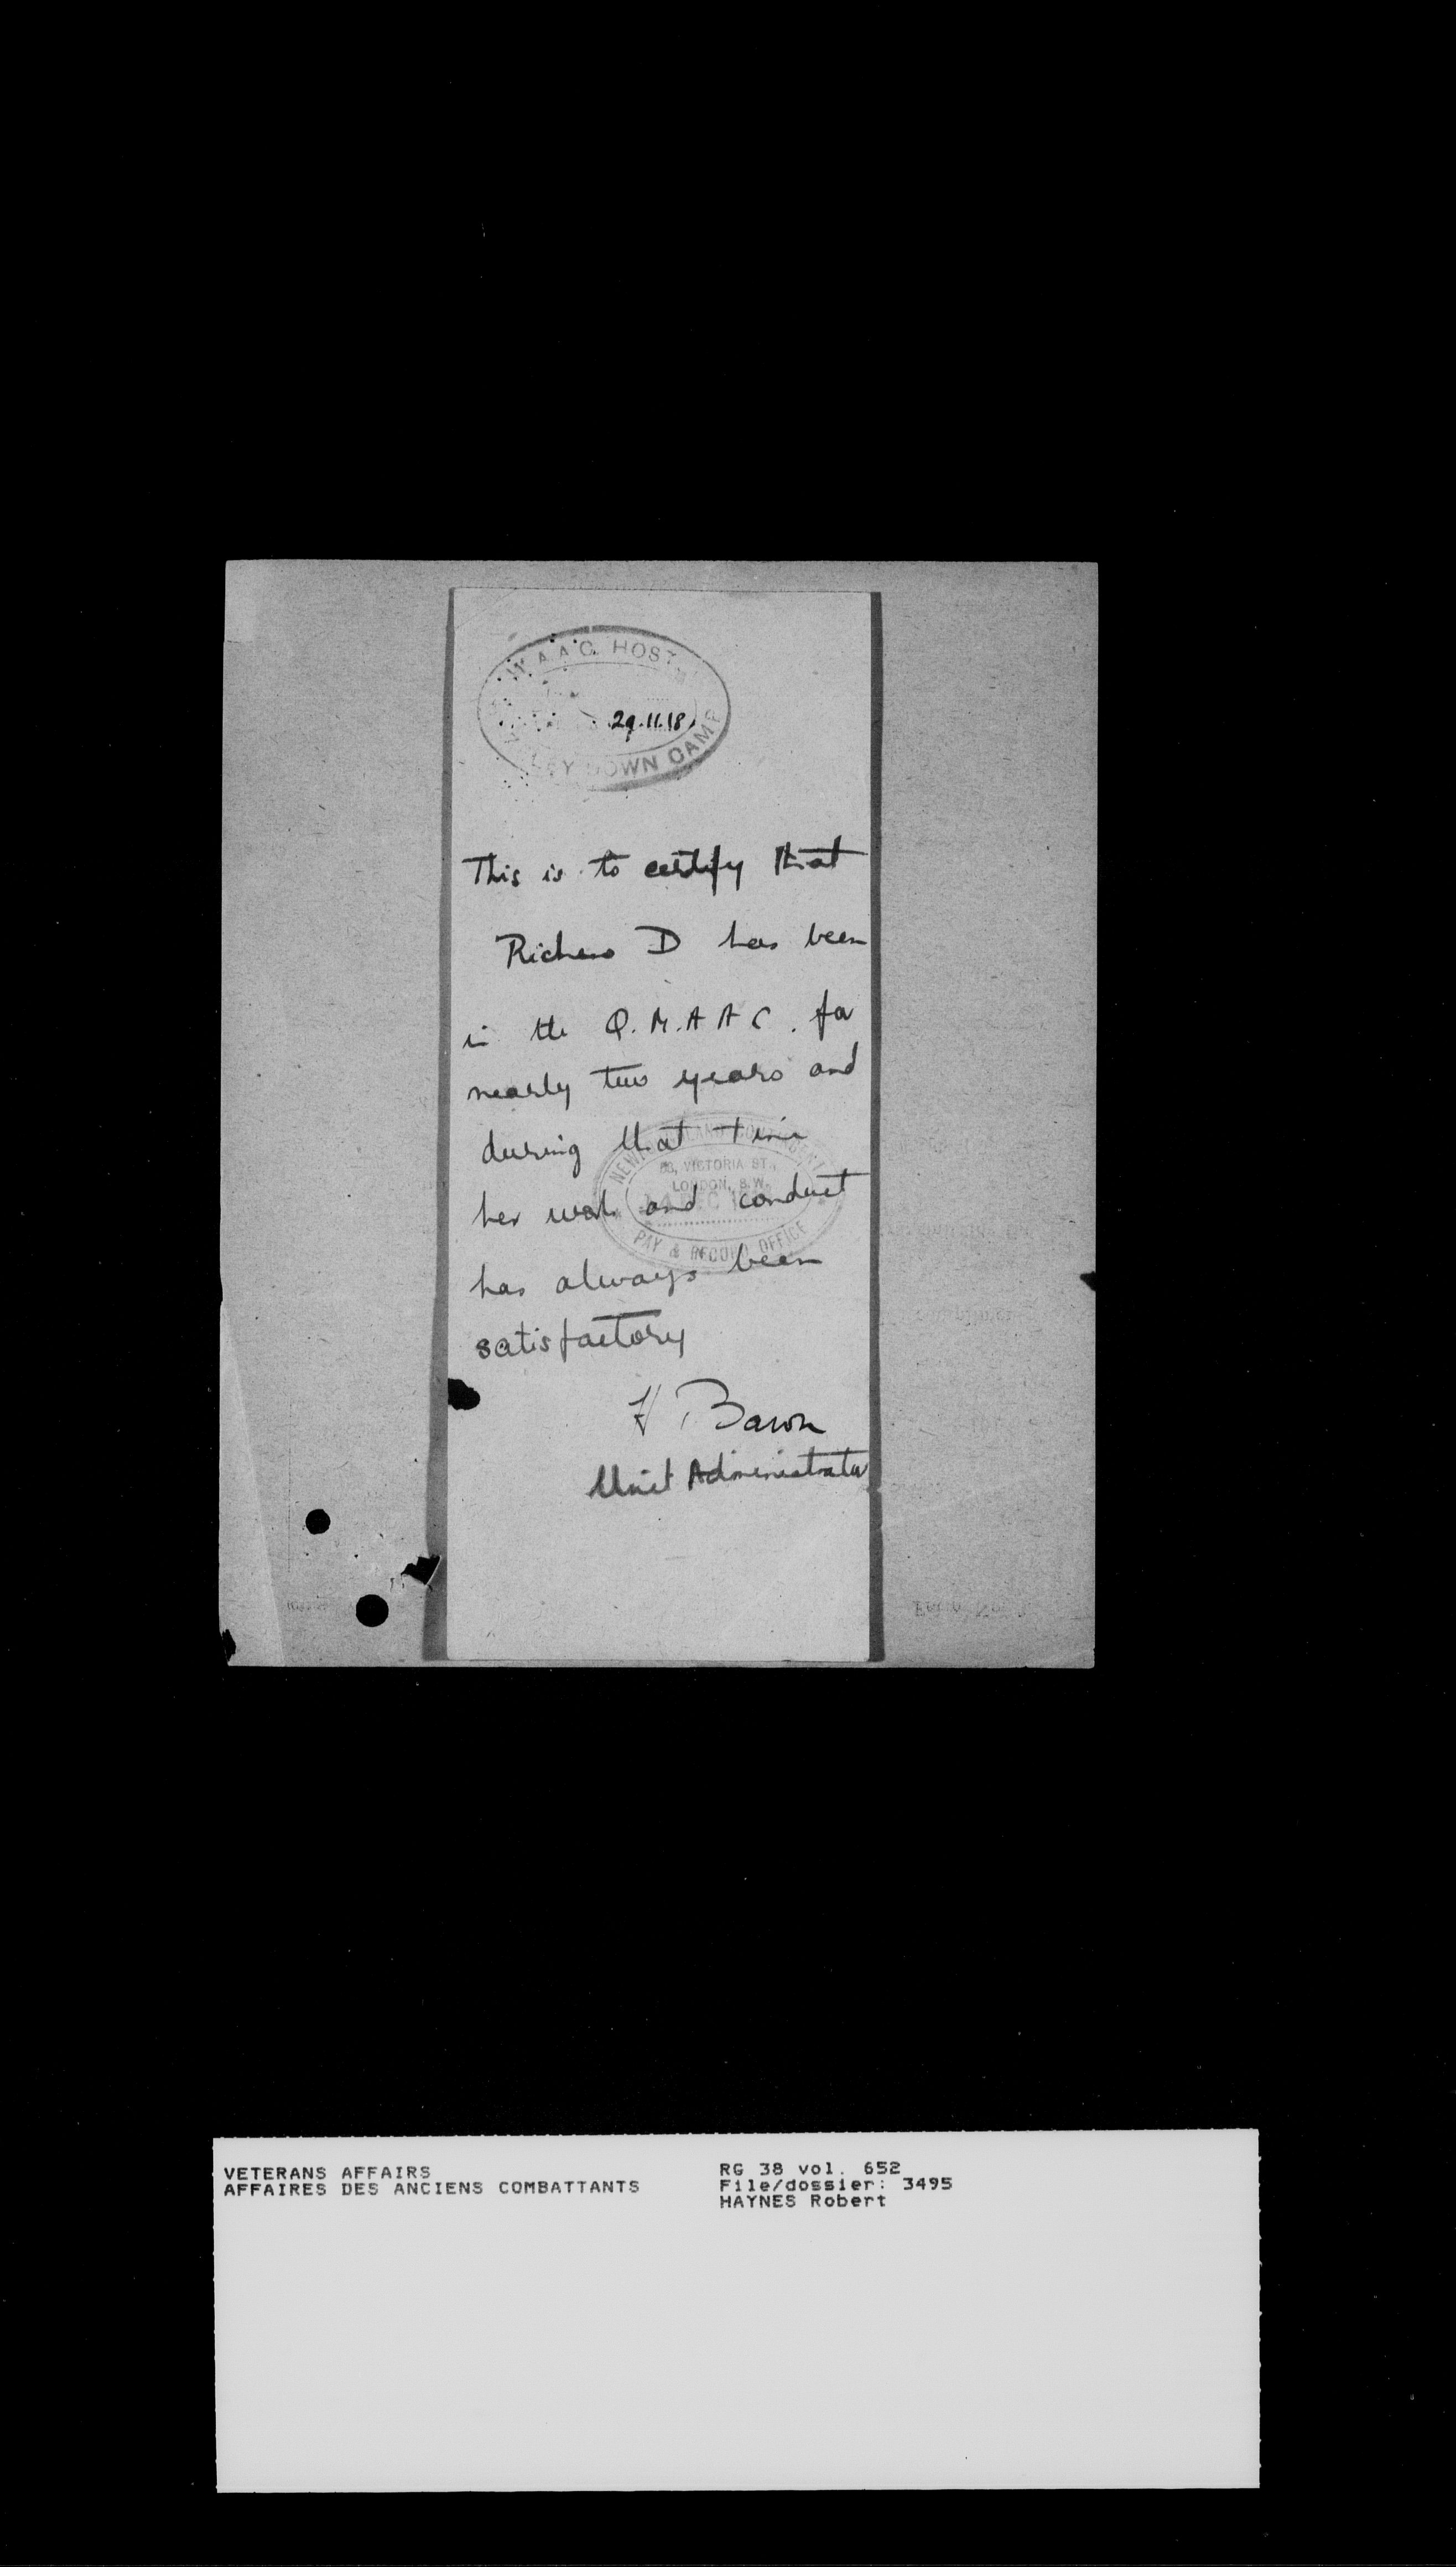 W.A.A.C. HOST
29.11.18
DOWN CAMP
This is to certify that
D has been
in the Q.M.A.A.C. for
nearly two years and
during that time
her work and conduct
has always been
satisfactory
Baron
Unit Administrator
NEWFOUNDLAND CONTINGENT
58, VICTORIA ST.,
LONDON, S.W.
PAY & RECORD OFFICE
VETERANS AFFAIRS
AFFAIRES DES ANCIENS COMBATTANTS
RG 38 vol. 652
File/dossier: 3495
HAYNES Robert